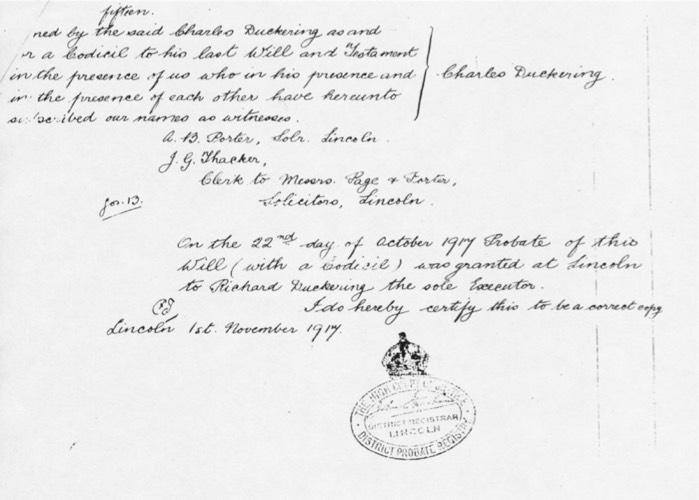 fifteen.
ned by the said Charles Duckering as and
r a Codicil to his last Will and Testament
in the presence of us who in his presence and
in the presence of each other have hereunto
subscribed our names as witnesses.
Charles Duckering.
A. B. Porter, Solr. Lincoln.
J. G. Thacker,
Clerk to Messrs. Page & Porter,
Solicitors, Lincoln.
fos. 13.
On the 22nd day of October 1917 Probate of this
Will (with a Codicil) was granted at Lincoln
to Richard Duckering the sole Executor.
I do hereby certify this to be a correct copy
Lincoln 1st. November 1917.
THE HIGH COURT OF JUSTICE
DISTRICT REGISTRAR
LINCOLN
DISTRICT PROBATE REGISTRY